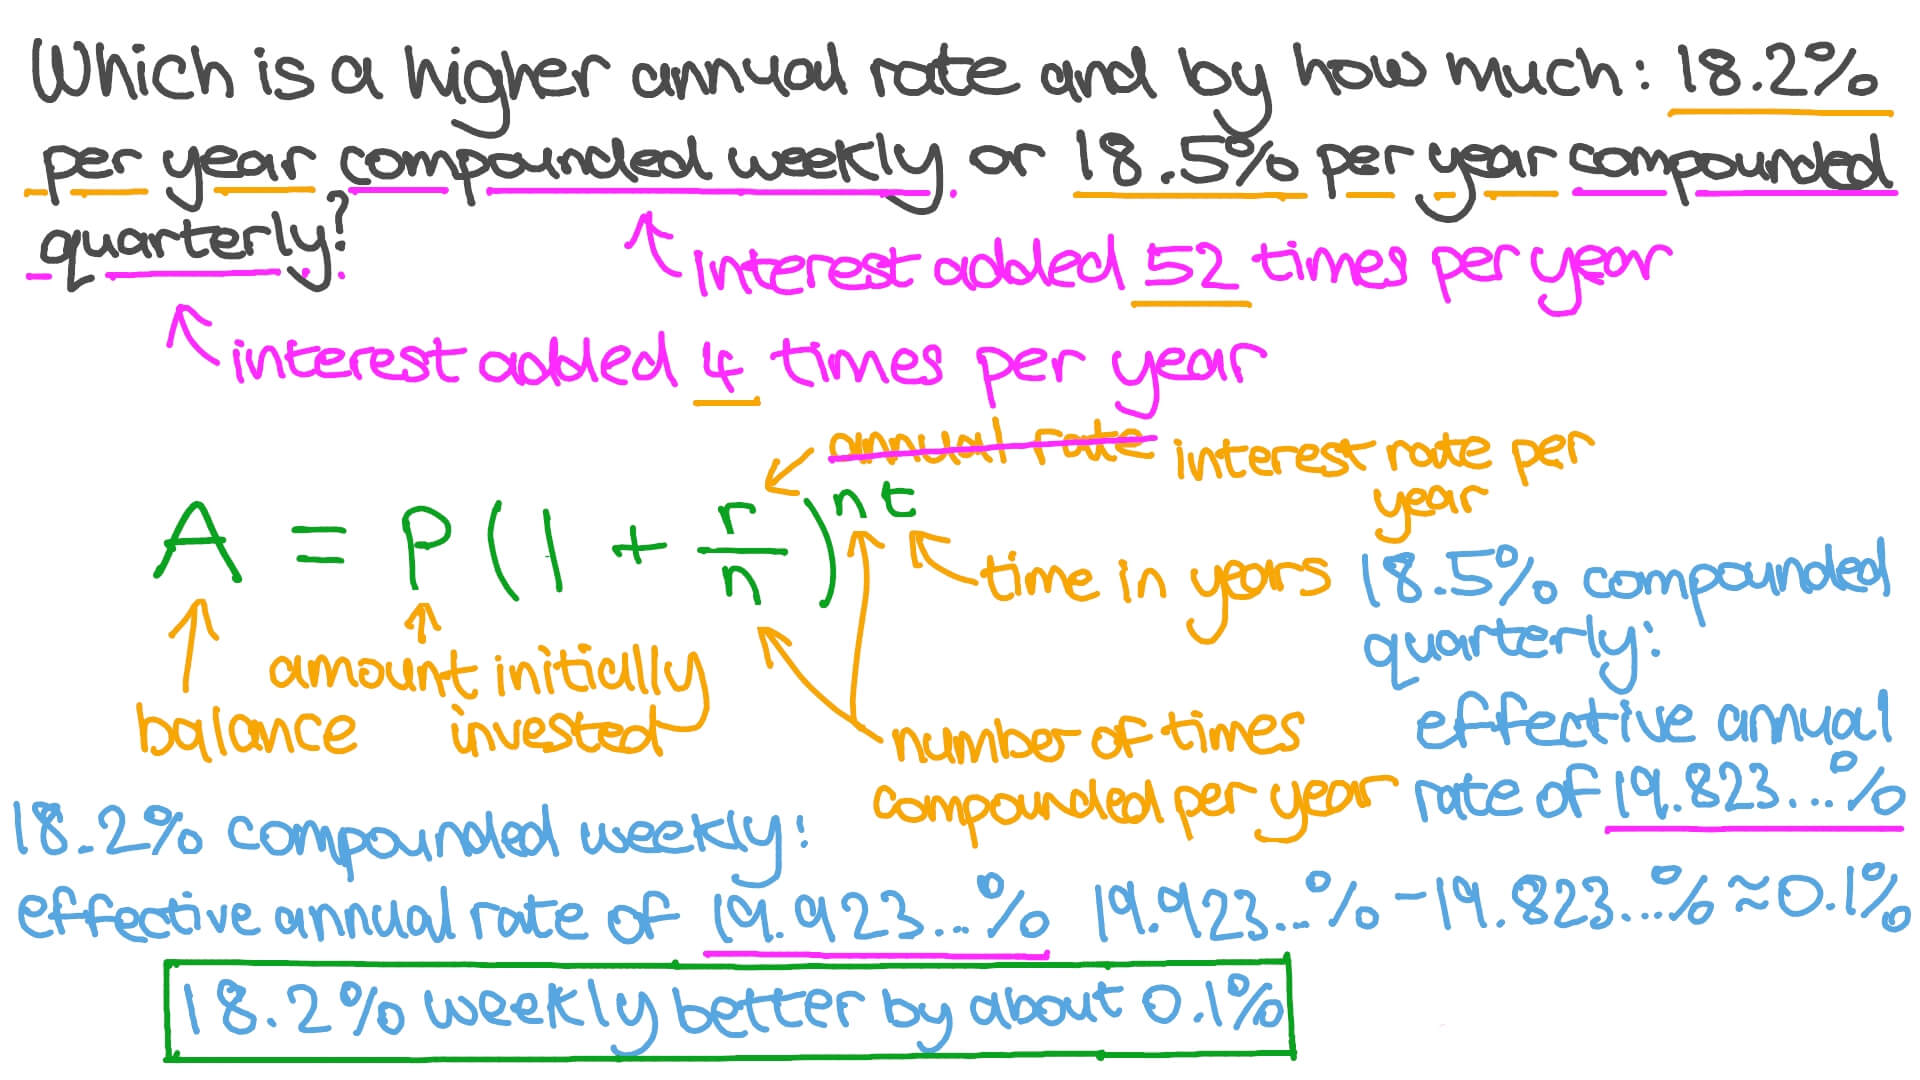 Which is a higher annual rate and by how much: 18.2%
per year compounded weekly or 18.5% per year compounded
quarterly?
interest added 52 times per year
interest added 4 times per year
annual rate interest rate per
year
A = P(1 + r/n)^nt
time in years
amount initially
invested
balance
number of times
compounded per year
18.5% compounded
quarterly:
effective annual
rate of 19.823...%
18.2% compounded weekly:
effective annual rate of 19.923...%
19.923...% - 19.823...% ≈ 0.1%
18.2% weekly better by about 0.1%